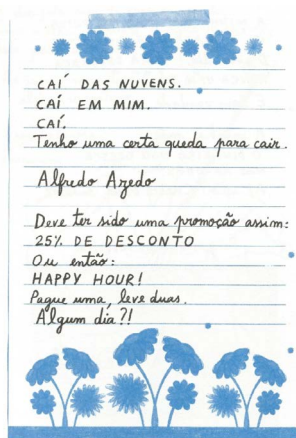 CAÍ DAS NUVENS.
CAÍ EM MIM.
CAÍ.
Tenho uma certa queda para cair.
Alfredo Azedo
Deve ter sido uma promoção assim:
25% DE DESCONTO
Ou então:
HAPPY HOUR!
Pague uma, leve duas.
Algum dia?!